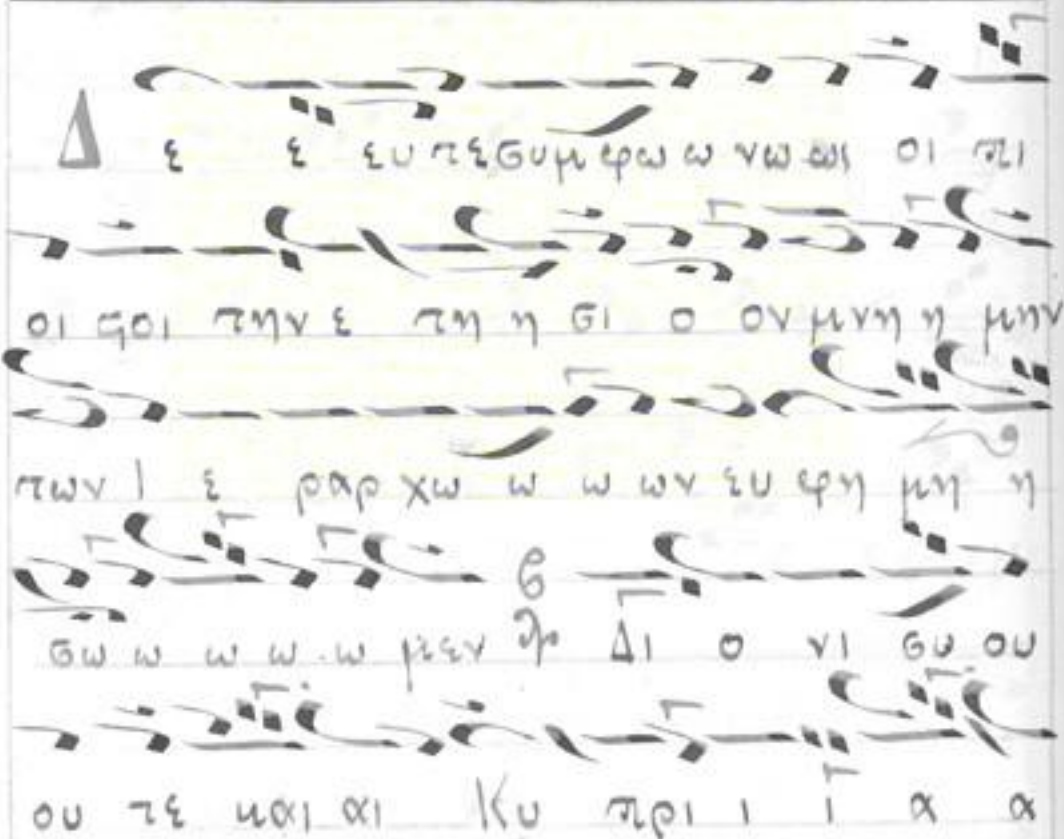 Δ ε ε ευ τε συμ φω ω νω ως οι πι
οι στοι την ε τη η σι ο ον μνη η μην
των Ι ε ραρ χω ω ω ων ευ φη μη η
σω ω ω ω ω μεν Δι ο νι συ ου
ου τε και αι Κυ πρι ι ι α α